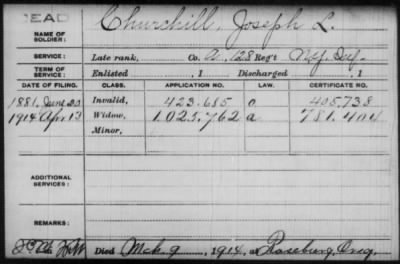 DEAD
NAME OF SOLDIER: Churchill, Joseph L.
SERVICE: Late rank, Co. A, 128 Reg't N.Y. Inf.
TERM OF SERVICE: Enlisted , 1 Discharged , 1
DATE OF FILING. CLASS. APPLICATION NO. LAW. CERTIFICATE NO.
1881, June 20 Invalid, 423.685 405.738
1914 Apr. 13 Widow, 1.025.762 a 781.404
Minor,
ADDITIONAL SERVICES:
REMARKS:
Died Mch. 9, 1914, at Roseburg, Oreg.